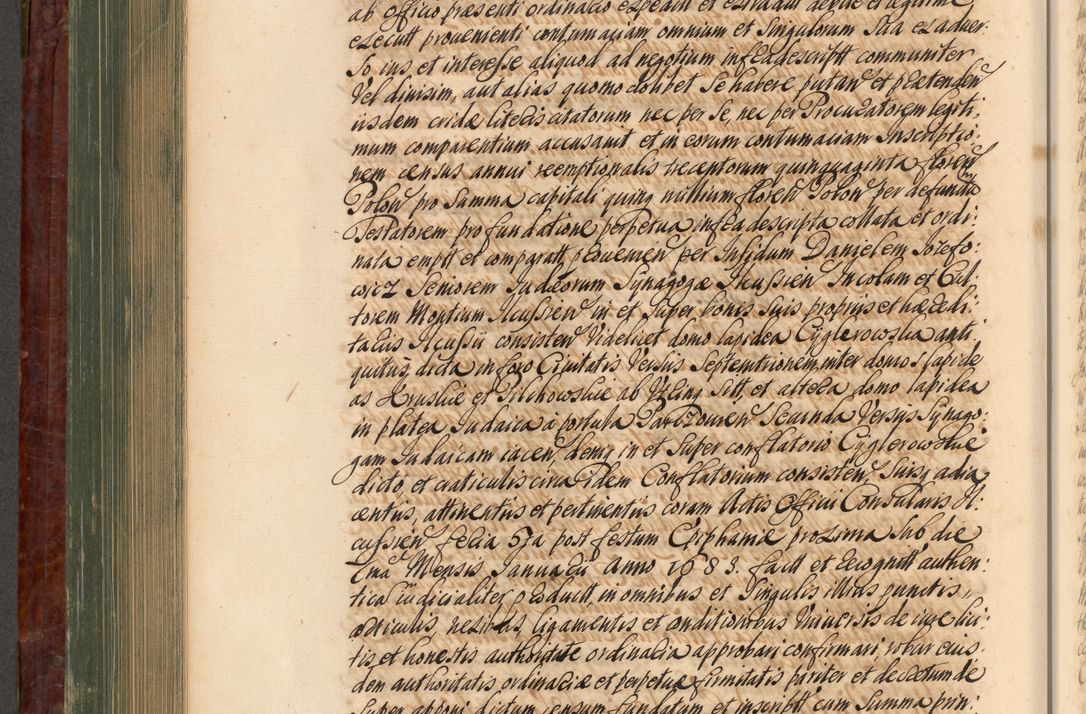 ab officio præsenti ordinario expedit et extradit debite et legitime,
execut provenienti contumaciam omnium et Singulorum Sua ex adver:
so ius, et interesse aliquod ad negotium infrascript communiter
Vel divisim, aut alias quomodolibet Se habere putan et prætenden
iisdem eidē literis citatorum nec per Se, nec per Procuratorem legiti:
mum comparentium accusavit et in eorum contumaciam Inscriptio:
nem census annui reemptionalis trecentorum quinquaginta floren
Polon pro Summa capitali quinq millium floren Polon per defunctū
Testatorem pro fundatione perpetua infra descripta collata et ordi:
nata empt et comparat provenien per Infidum Danielem Jozefo:
wicz Seniorem Judæorum Synagogæ Ilcussien Incolam et Cul:
torem Montium Ilcussien in et Super bonis Suis propriis et hæredi:
tariis Ilcussii consisten Videlicet domo lapidea Cyglerowska anti:
quitus dicta in foro Civitatis Versus Septemtrionem, inter domos lapide
as Hruslie et Pilchowskie ab Utrinq Sitt, et altera domo lapidea
in platea Judaica à portula Parzowien Secunda Versus Synago:
gam Judaicam iacen demq in et Super conflatorio Cyglerowskie
dicto, et craticulis circa idem Conflatorium consisten, Suisq adia
centiis, attinentiis et pertinentiis coram Actis Officii Consularis Il:
cussien feria 5ta post festum Epiphaniæ proxima Sub die
Mensis Januarii Anno 1683. fact et recognitt authen:
tica iudicialiter product, in omnibus et Singulis illius punctis,
articulis, nexibus, ligamentis et conditionibus Universis de iure lici:
tis, et honestis authoritate ordinaria approbari confirmari, robur eius:
dem authoritatis ordinariæ et perpetuæ firmitatis pariter et decretum de
Super apponi, dictum censum fundatum et inscribitt cum Summa prin: